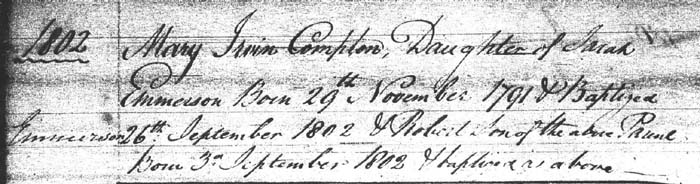 1802 Mary Irvin Compton, Daughter of Sarah
Emmerson Born 29th November 1791 & Baptized
Emmerson 26th September 1802 & Robert Son of the above
Born 3d September 1802 & baptized as above